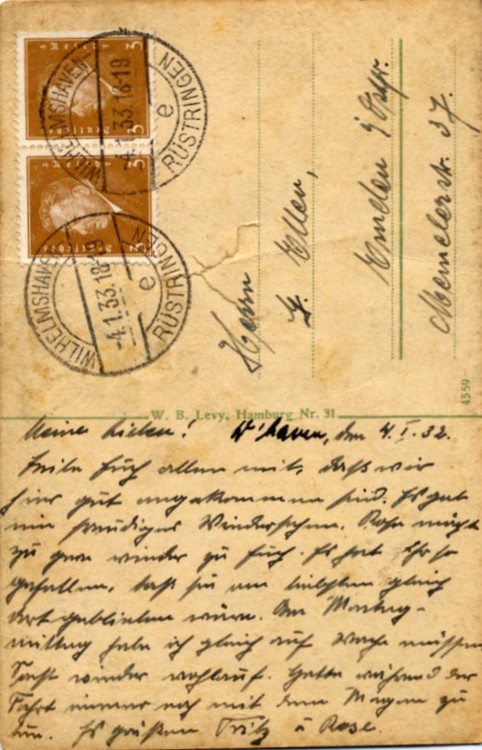 WILHELMSHAVEN
RÜSTRINGEN
-4.1.33.18-19
e
3
3
WILHELMSHAVEN
RÜSTRINGEN
-4.1.33.18-19
e
3
3
Herrn
G. Ellen,
Emden i/Ostfr.
Memelerstr. 37.
4559
W. B. Levy, Hamburg Nr. 31
Meine Lieben! W'haven, den 4.I.32.
Teile Euch allen mit, daß wir
hier gut angekommen sind. Es gab
ein freudiges Wiedersehen. Rose möcht
zu gern wieder zu Euch. Es hat Ihr so
gefallen, daß sie am liebsten gleich
dort geblieben wäre. Am Montag-
mittag habe ich gleich auf Wache müssen
wieder wohlauf. Hatte während der
Fahrt immer noch mit dem Magen zu
tun. Es grüßen Fritz u Rose.